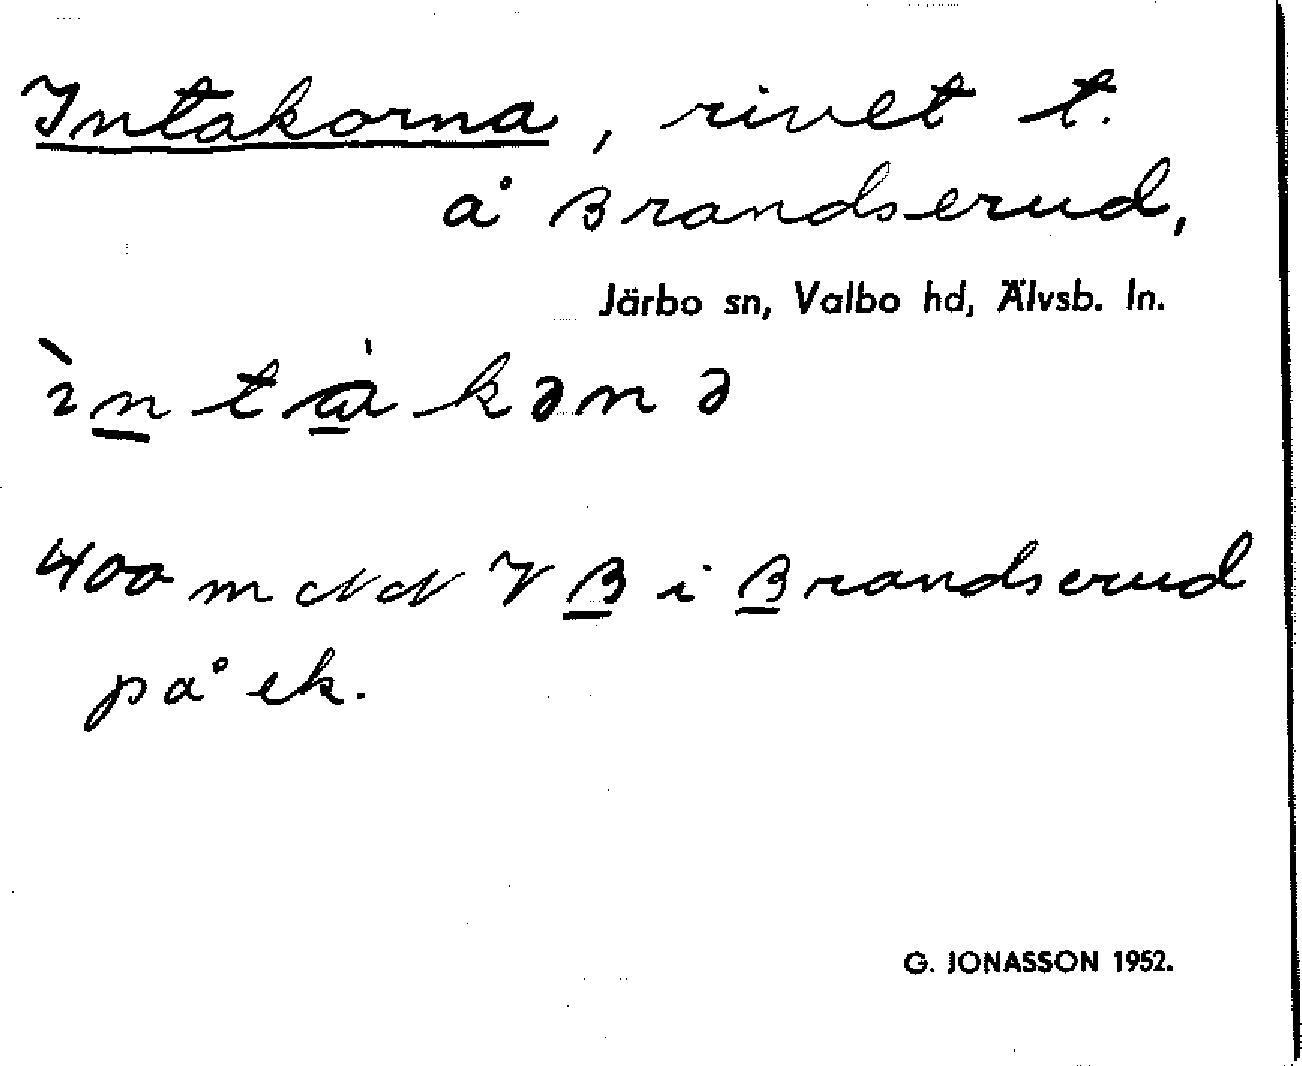 Intakorna, rivet t.
å Brandserud,
Järbo sn, Valbo hd, Älvsb. ln.
ìntàkənə
400 m NNV B i Brandserud
på ek.
G. JONASSON 1952.